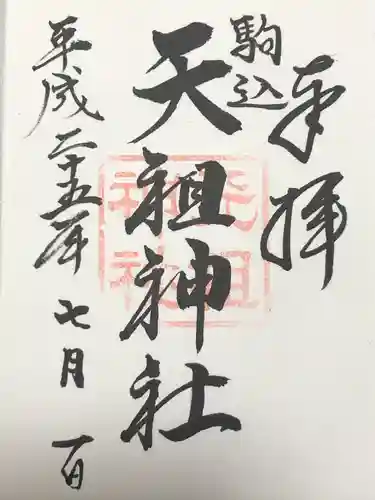 奉拝
駒込
天祖神社
平成二十五年七月一日
天祖神社